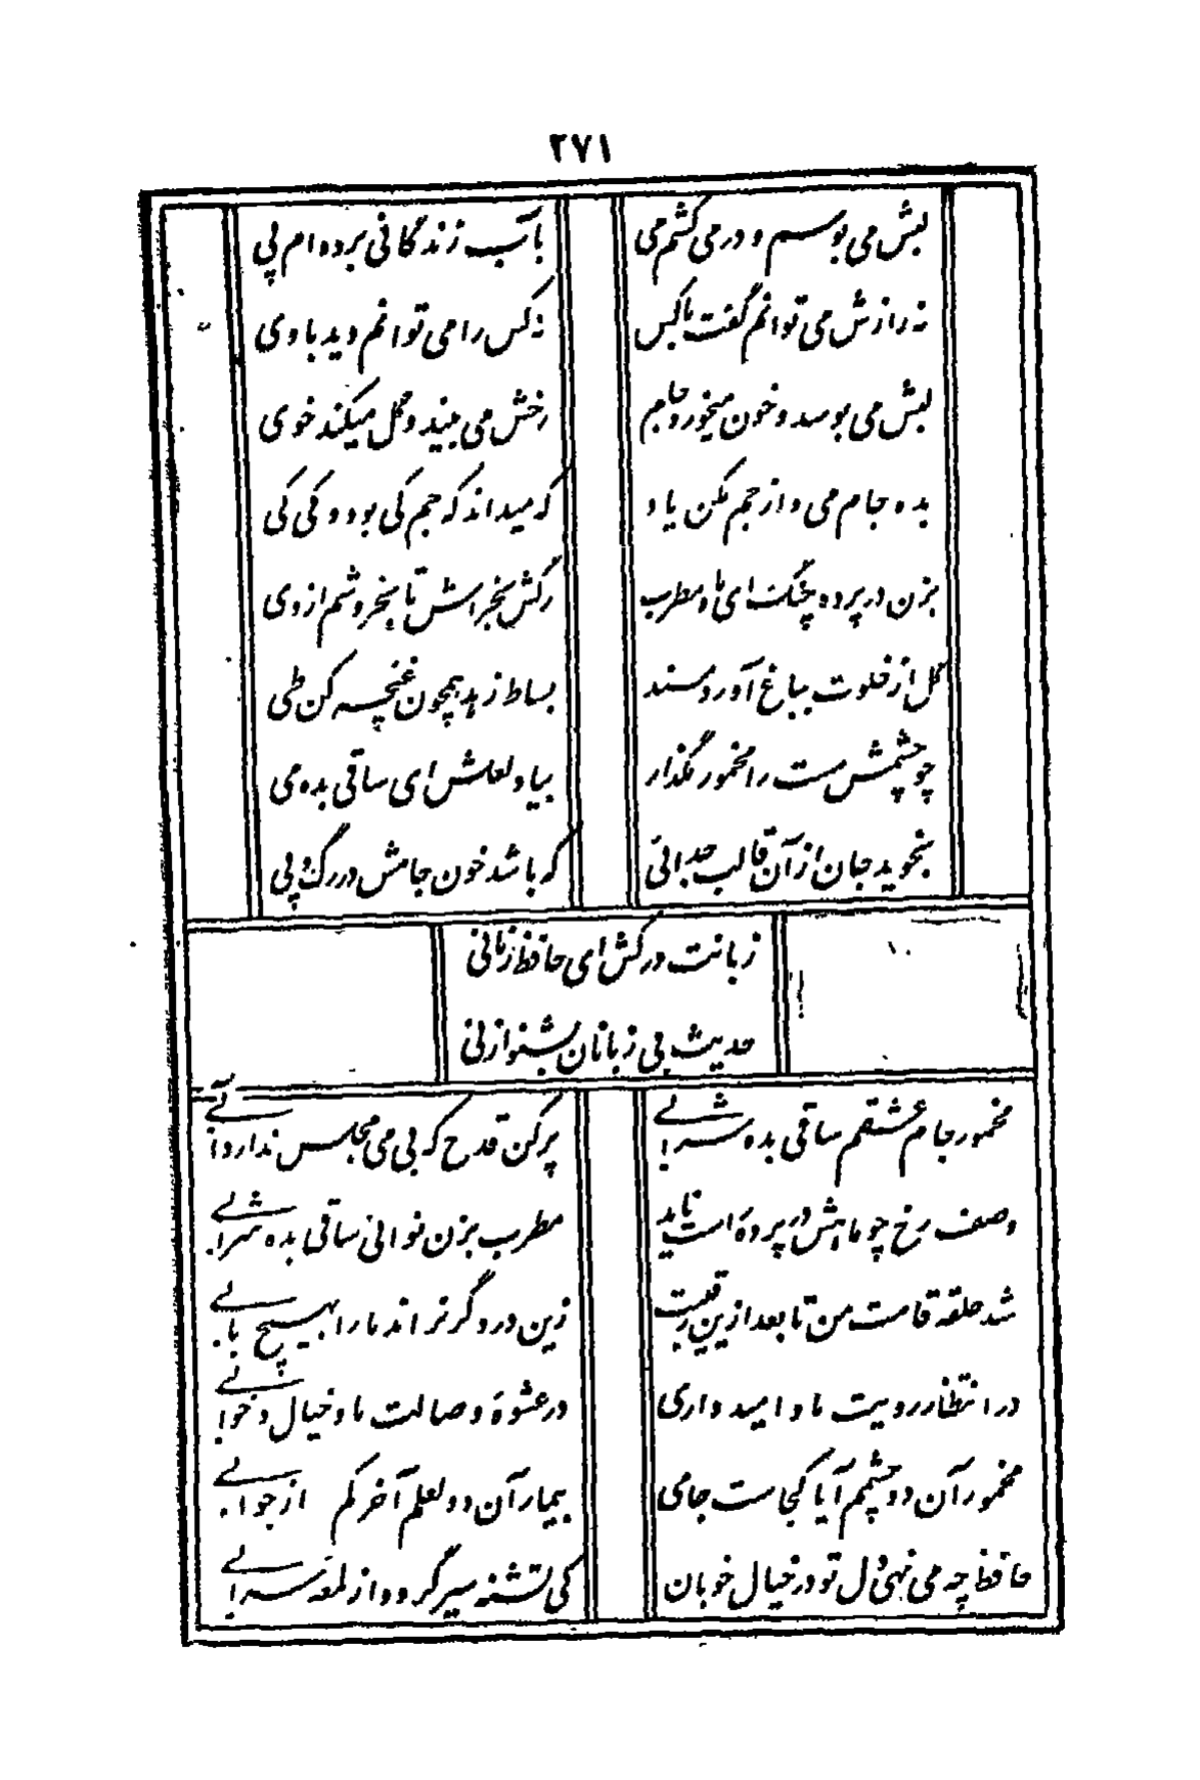 ۲۷۱
لبش می بوسم و در می کشم می
بآب زندگانی برده ام پی
نه رازش می توانم گفت باکس
نه کس را می توانم دید باوی
لبش می بوسد و خون میخورد جام
رخش می بیند و گل میکند خوی
بده جام می و از جم مکن یاد
که میداند که جم کی بود و کی کی
بزن در پرده چنگ ای ماه مطرب
رگش بخراش تا بخروشم از وی
گل از خلوت بباغ آورد مسند
بساط زهد همچون غنچه کن طی
چو چشمش مست را مخمور مگذار
بیاد لعلش ای ساقی بده می
بنجوید جان از آن قالب جدائی
که باشد خون جامش در رگ و پی
زبانت درکش ای حافظ زمانی
حدیث بی زبانان بشنو از نی
مخمور جام عشقم ساقی بده شرابی
پرکن قدح که بی می مجلس ندارد آبی
وصف رخ چو ماهش در پرده است ناید
مطرب بزن نوائی ساقی بده شرابی
شد حلقه قامت من تا بعد ازین رقیبت
زین در دگر نراند ما را بهیچ بابی
در انتظار رویت ما و امیدواری
در عشوهٔ وصالت ما و خیال و خوابی
مخمور آن دو چشمم آیا کجاست جامی
بیمار آن دو لعلم آخر کم از جوابی
حافظ چه می نهی دل تو در خیال خوبان
کی تشنه سیر گردد از لمعه سرابی